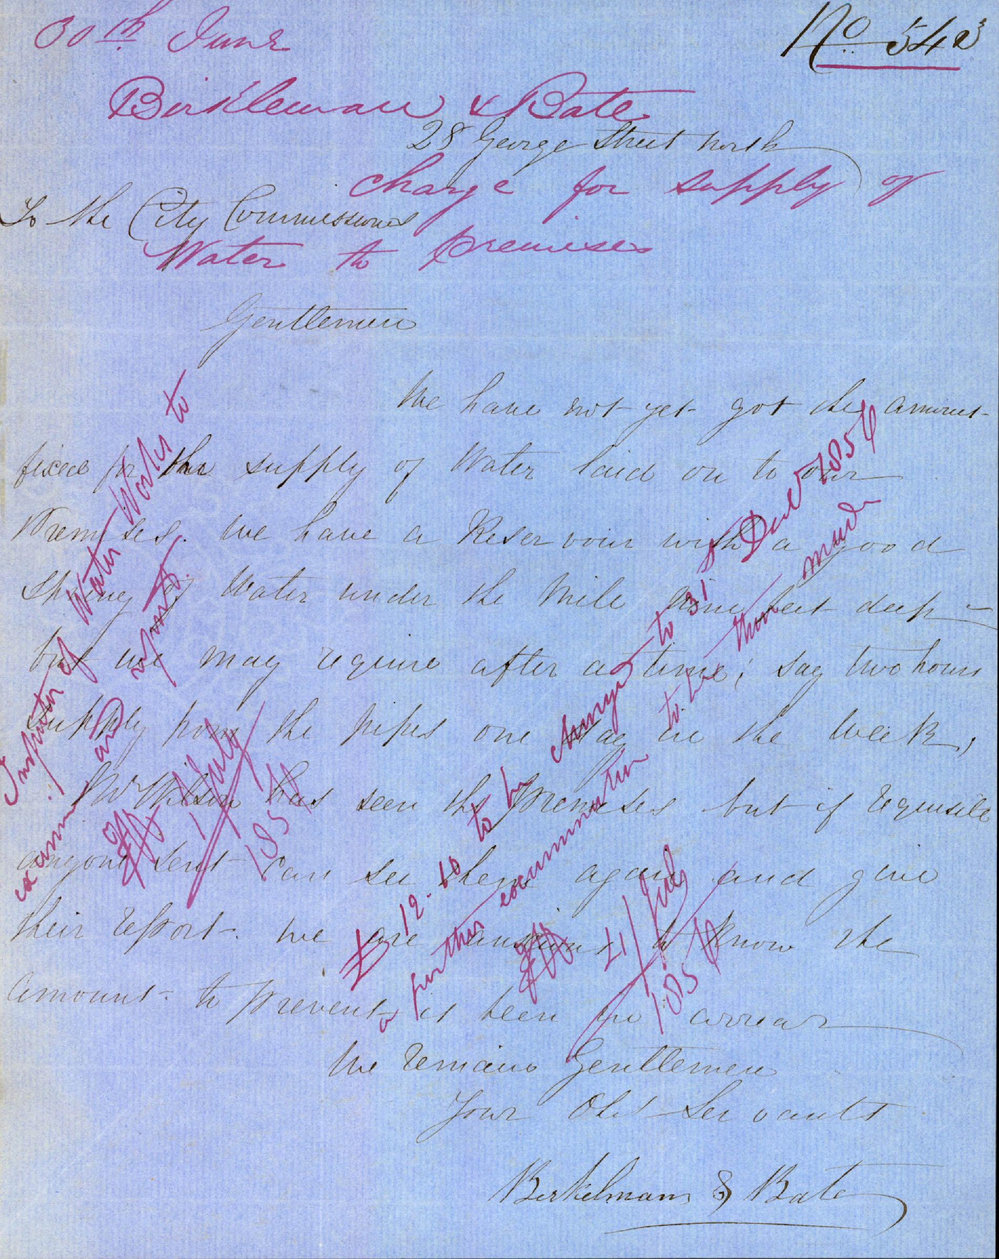 30th June
No 543
Birkleman & Bate
28 George Street North
charge for supply of
To the City Commissioners
Water to premises
Gentlemen
We have not yet got the amount
fixed for the supply of Water laid on to our
Premises. We have a Reservour with a good
Spring of Water under the Mill nine feet deep -
but we may require after a time; say two hours
supply from the pipes one day in the week,
Mr Wilson has seen the Premises but if requisite
anyone sent can see them again and give
their report. We are anxious to know the
amount to prevent it been in arrear
We remain Gentlemen
Your Obt Servants
Birkelmann & Bate
Inspector of Water Works to
examine and report
1 July
1854
£12-10 to be charged to 31st Decr 1854
a further examination to be then made
21 July
1854